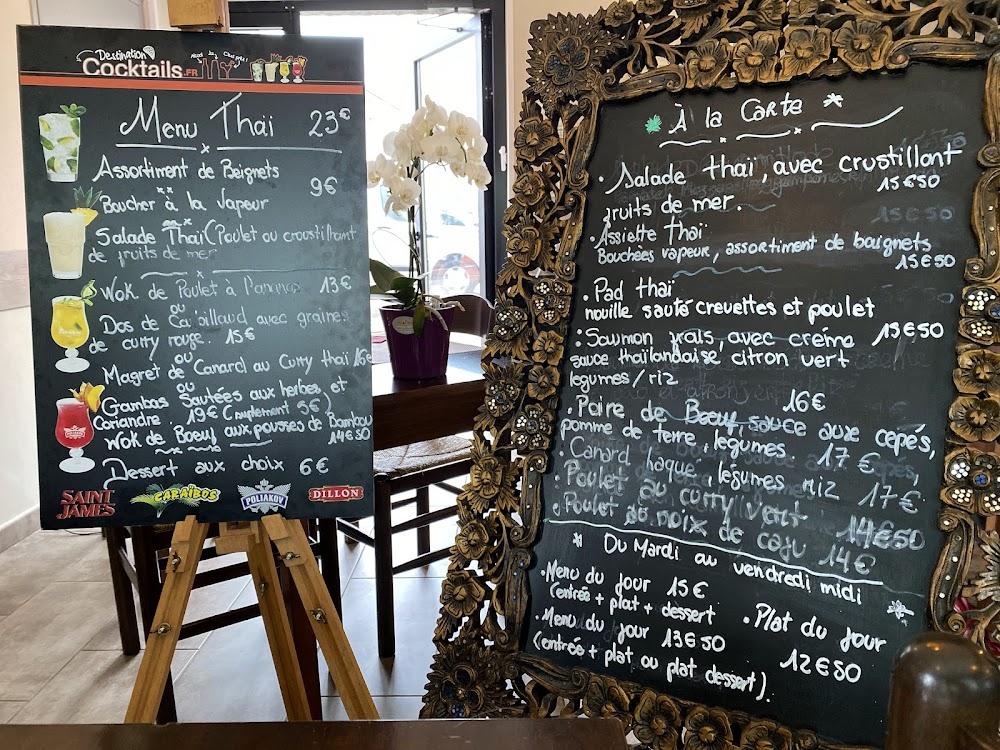 Destination
Cocktails.FR
Menu Thaï 23€
Assortiment de Beignets
9€
Boucher à la Vapeur
Salade Thaï (Poulet ou croustillant
de fruits de mer
Wok de Poulet à l'ananas 13€
ou
Dos de Cabillaud avec graines
de curry rouge. 15€
ou
Magret de Canard au Curry thaï 16€
ou
Gambas Sautées aux herbes et
Coriandre 19€ (supplement 5€)
Wok de Boeuf aux pousses de Bambou
14€50
Dessert aux choix 6€
SAINT JAMES
CARAÏBOS
POLIAKOV
DILLON
À la Carte *
• Salade thaï, avec crustillant
fruits de mer. 15€50
• Assiette thaï
Bouchées vapeur, assortiment de baignets
15€50
• Pad thaï
nouille sauté crevettes et poulet
15€50
• Saumon frais, avec créme
sauce thaïlandaise citron vert
legumes/riz
16€
• Paire de Boeuf sauce aux cepés,
pomme de terre, legumes. 17€
• Canard laqué, légumes riz 17€
• Poulet au curry vert 14€50
• Poulet au noix de caju 14€
* Du Mardi au vendredi midi
• Menu du jour 15€
(entrée + plat + dessert)
• Menu du jour 13€50
(entrée + plat ou plat dessert).
• Plat du jour
12€50